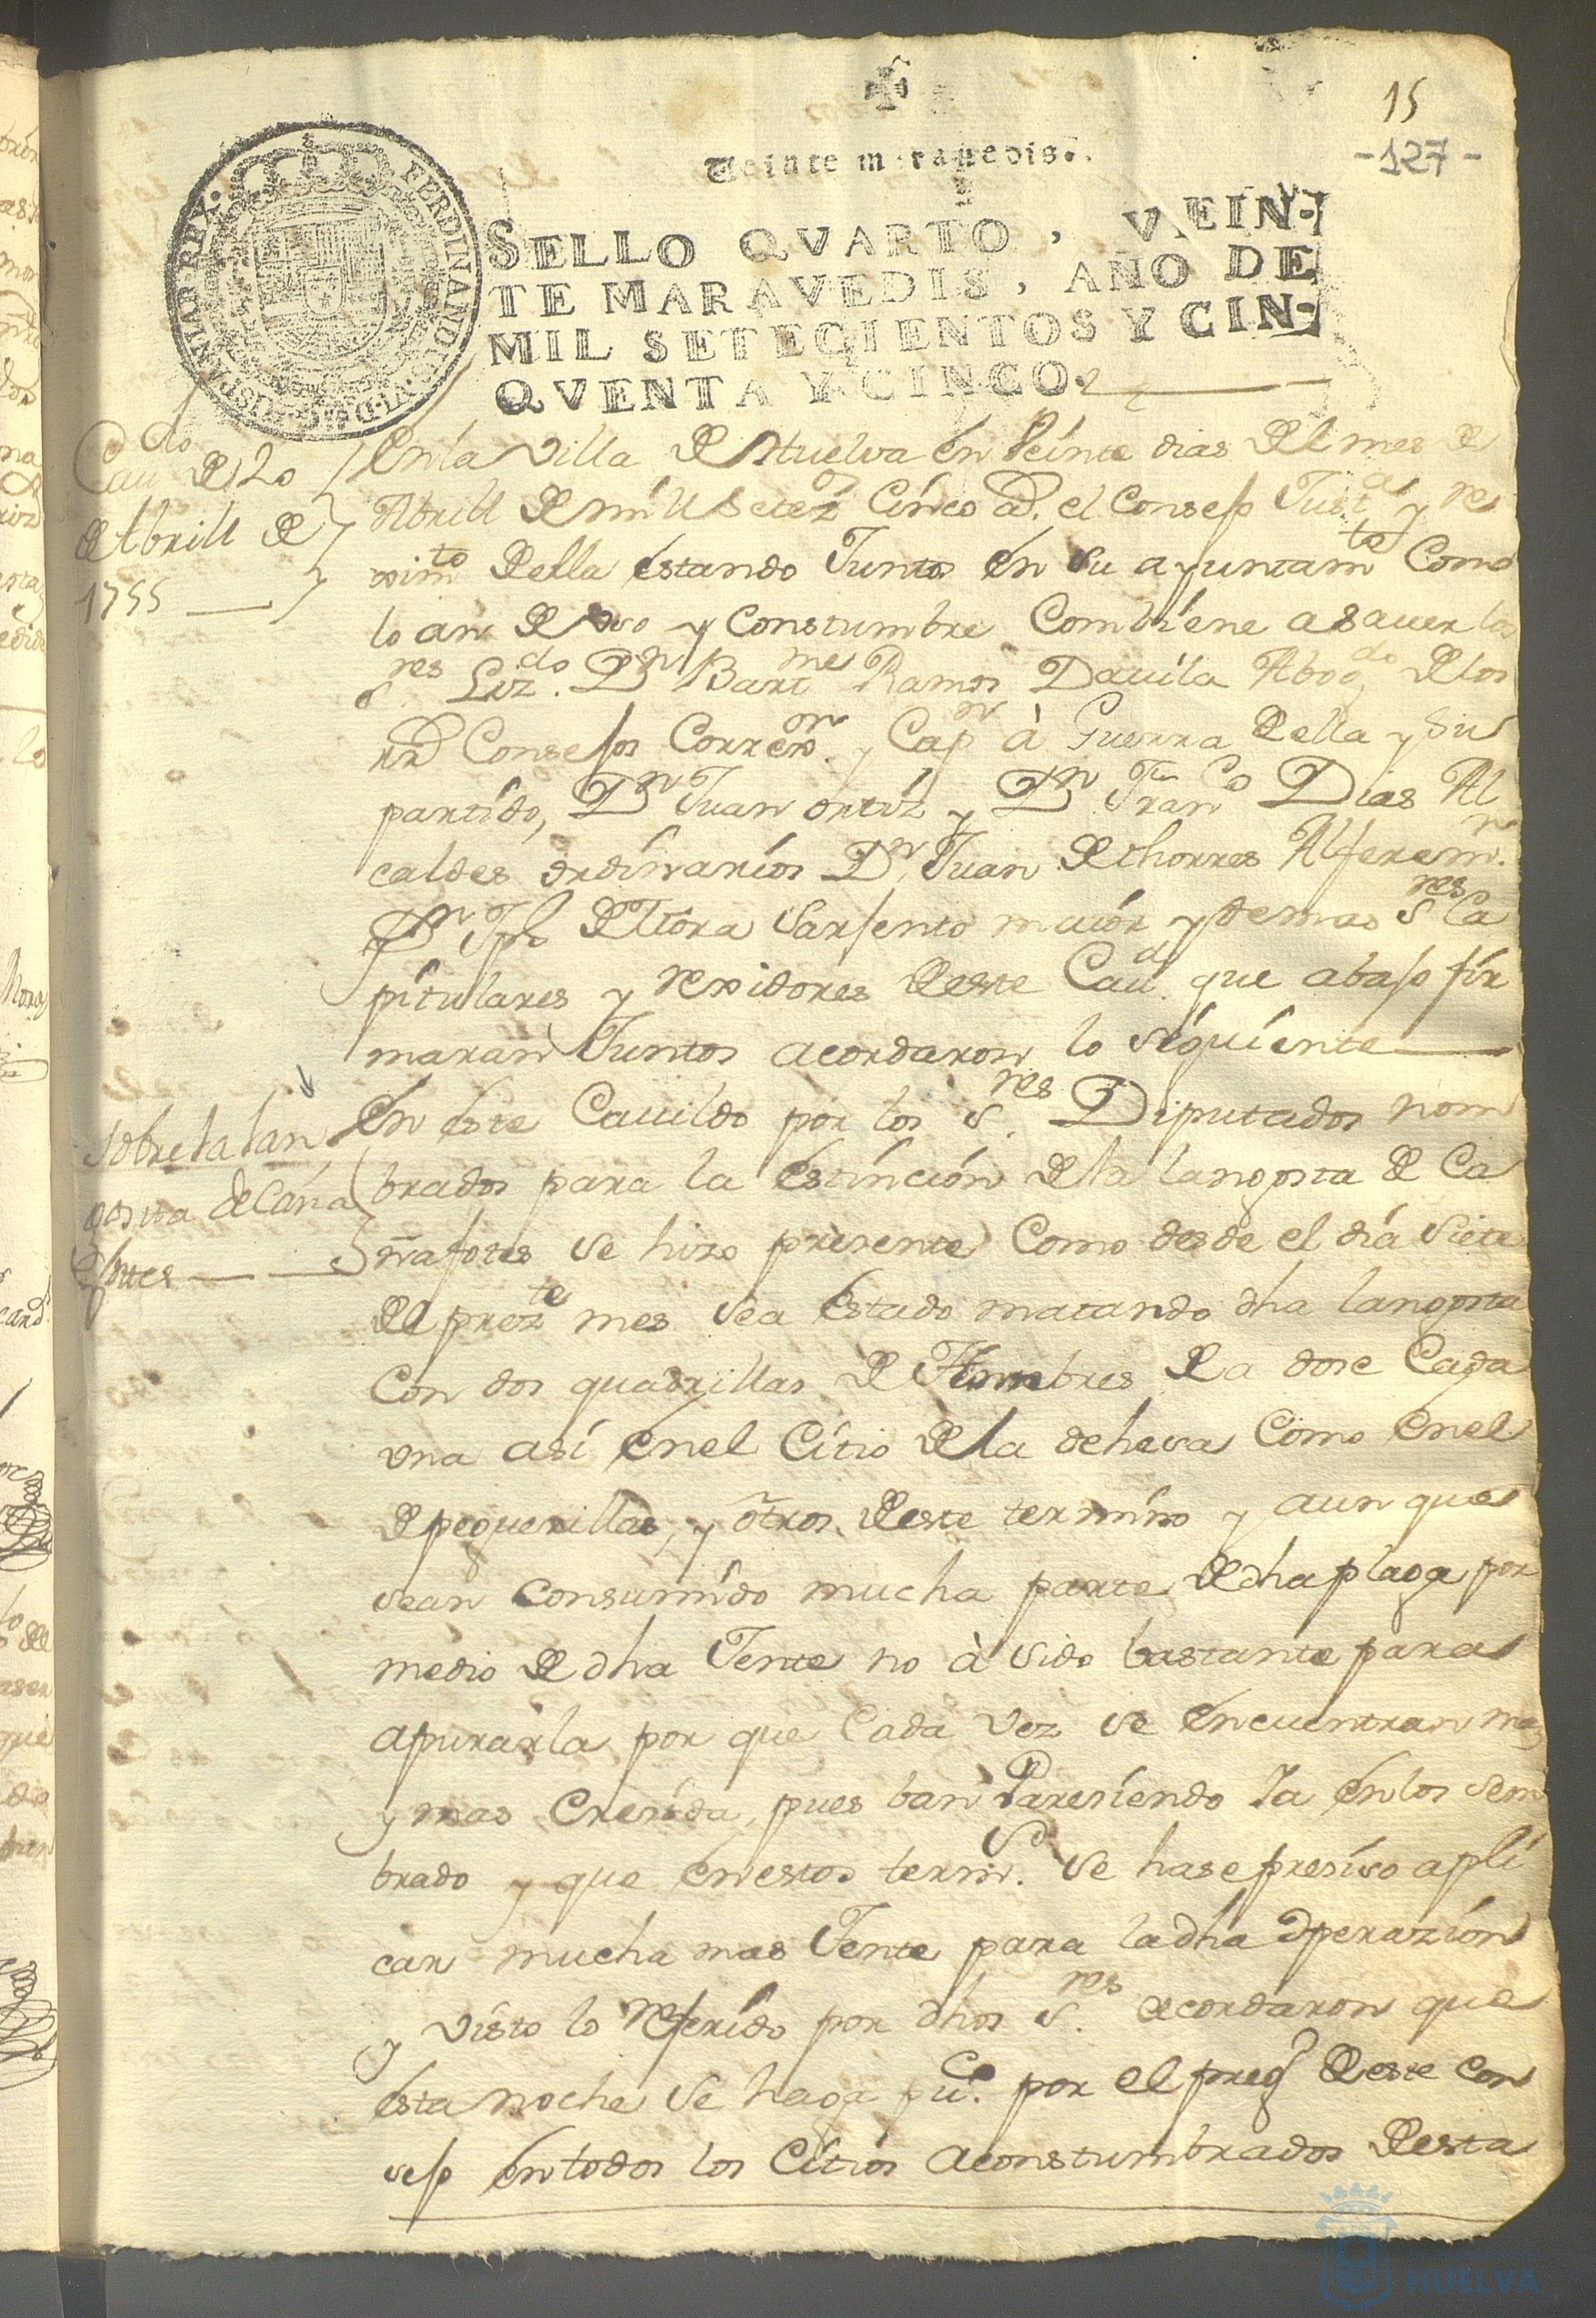 15
-127-
Veinte maravedis.
SELLO QVARTO, VEIN-
TE MARAVEDIS, AÑO DE
MIL SETECIENTOS Y CIN-
QVENTA Y CINCO.
FERDINAND.VI.D.G.HISPANIAR.REX.
Cau.do de 20
de Abrill de
1755
En la villa de Huelva en Veinte dias del mes de
Abrill de mill setez.os Cinco a.d. el Consejo Just.a y re
ximto della estando Juntos en su ayuntam.te Como
lo an de vso y Constumbre Combiene a sauer los
s.res Liz.do Dn Bartme Ramos Dauila Abog.do de los
rs Consejos Correxor. y Capn à Guerra della y su
partido, Dn Juan ortiz y Dn Franco Dias Al
caldes ordinarios Dn Juan de thorres Alferem.r
Dn Jph de Mora Sarjento maior y demas s.res Ca
pitulares y rexidores deste Cau.do que abajo fir
maran Juntos acordaron lo siguiente
sobre la lan
gosta de Caña
fotes
En este Cauildo por los s.res Diputados nom
brados para la estincion de la langosta de Ca
ñafotes se hizo presente Como desde el dia siete
del prezte mes sea estado matando dha langosta
Con dos quadrillas de Hombres de a dose Cada
vna asi en el Citio de la dehesa Como en el
de peguerillas, y otros deste termino y aunque
sean consumido mucha parte de dha plaga por
medio de dha Jente no à sido bastante para
apurarla por que Cada vez se encuentran mas
y mas Cresida, pues ban Paresiendo Ya en los sem
brado y que en estos termos. se hase presiso apli
car mucha mas Jente para la dha Operazion
y visto lo referido por dhos s.res acordaron que
esta noche se haga pu.co por el preg.o deste con
sejo en todos los Citios aconstumbrados desta
HUELVA